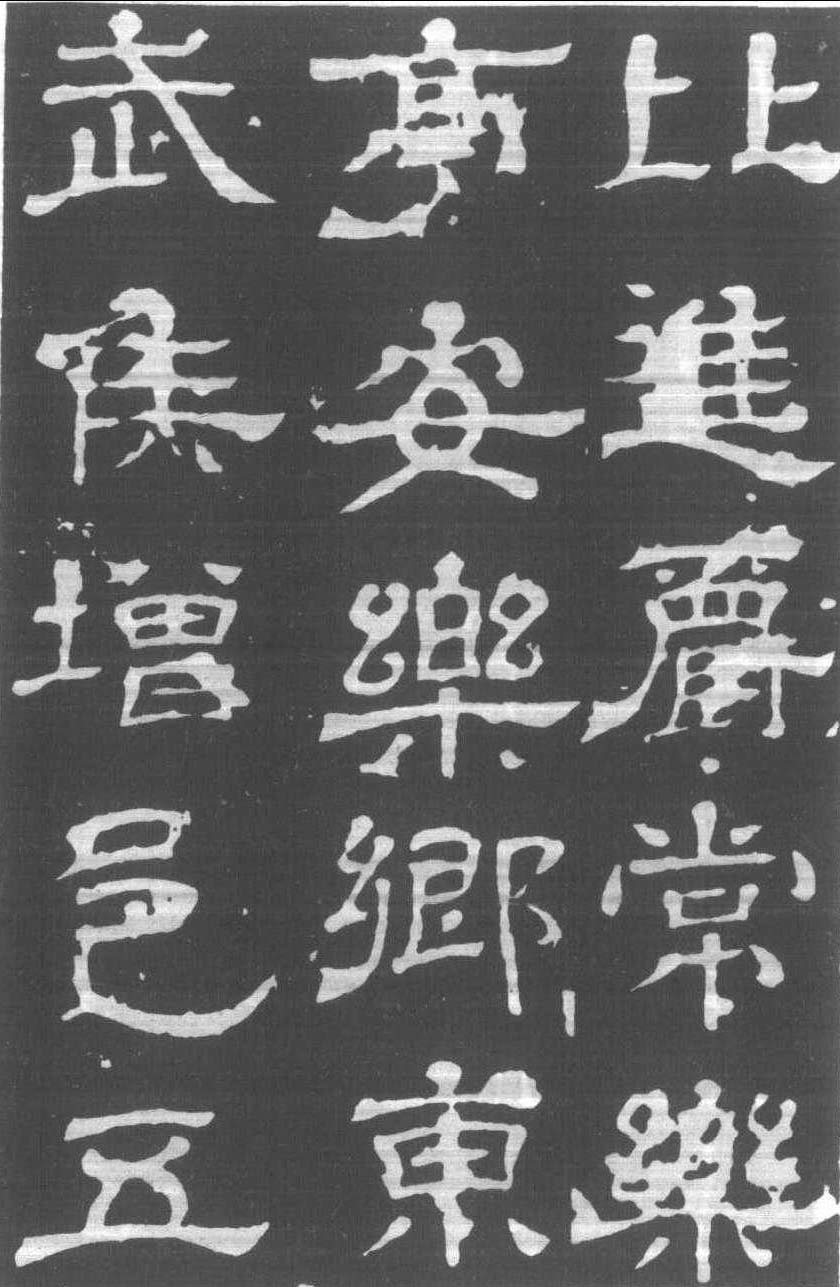 比進爵常樂
亭安樂鄉東
武侯增邑五